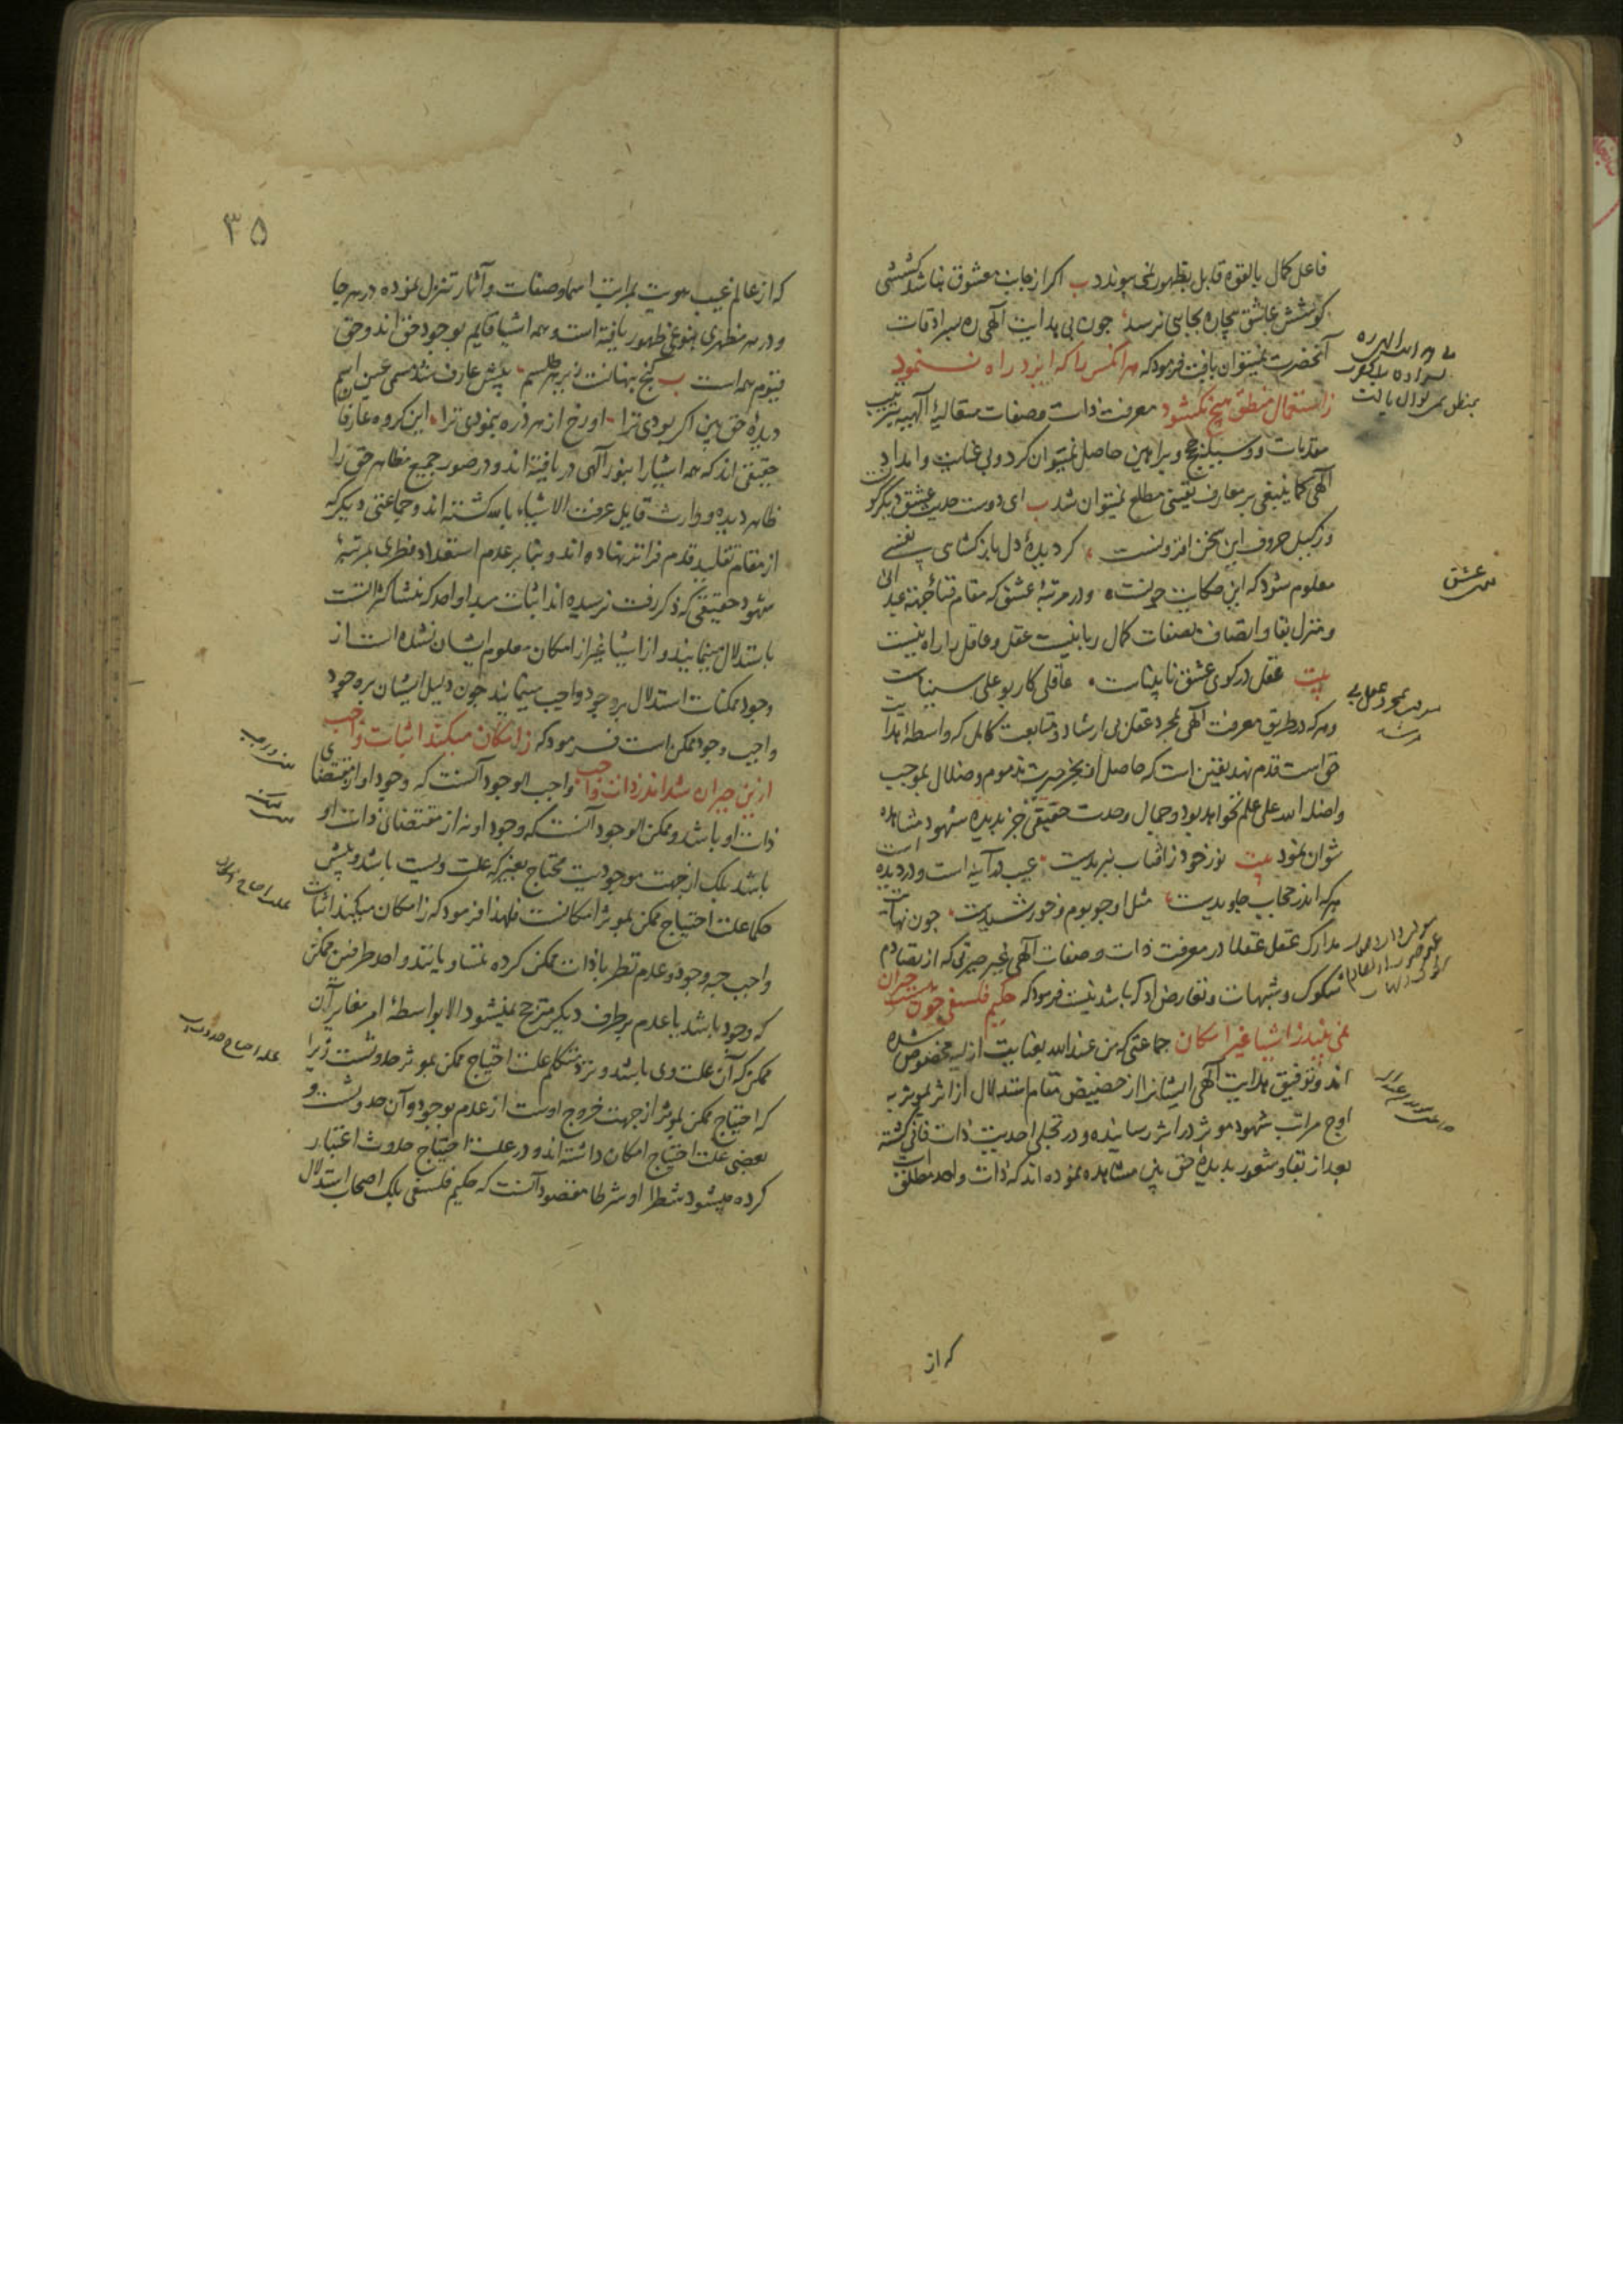 فاعل کمال بالقوه قابل بظهور نمی پیوندد ب اکر از جانب معشوق نباشد کششی
کوشش عاشق بیچاره بجایی نرسد چون بی هدایت الهی ره بسرادقات
آنحضرت نمیتوان یافت فرمود که هر آنکس را که ایزد راه ننمود
ز استعمال منطق هیچ نکشود معرفت ذات و صفات متعالیهٔ الهیه بترتیب
مقدمات و وسیله حجج و براهین حاصل نمیتوان کرد و بی عنایت و امداد
الهی کما ینبغی بر معارف یقینی مطلع نمیتوان شد ب ای دوست حدیث عشق دیکرکونست
وز کیل حروف این سخن افزونست کر دیدهٔ دل باز کشای نفسی
معلوم شود که این حکایت چونست و در مرتبهٔ عشق که مقام فنا
و منزل بقا و اتصاف بصفات کمال ربانیست عقل و عاقل را راه نیست
بیت عقل در کوی عشق نابیناست عاقلی کار بوعلی سیناست
و هر که در طریق معرفت الهی بمجرد عقل بی ارشاد و متابعت کامل که واسطهٔ
حق است قدم نهد یقین است که حاصل او بجز حیرت مذموم و ضلال بموجب
و اضله الله علی علم نخواهد بود و جمال وحدت حقیقی جز بدیدهٔ شهود مشاهده
نتوان نمود بیت نور خود ز آفتاب نبریدست عیب در آینه است و در دیده است
هر که اندر حجاب جاویدست مثل او چو بوم و خورشیدست چون نهایت
مدارک عقل عقلا در معرفت ذات و صفات الهی غیر حیرتی که از تصادم
شکوک و شبهات و تعارض ادله باشد نیست فرمود که حکیم فلسفی چون هست حیران
نمی بیند ز اشیا غیر امکان جماعتی که من عند الله بعنایت ازلیه مخصوص شده
اند و توفیق هدایت الهی ایشانرا از حضیض مقام استدلال از اثر بموثر به
اوج مراتب شهود موثر در اثر رسانیده و در تجلی احدیت ذات فانی کشته
بعد از بقا و شعور بدیدهٔ حق بین مشاهده نموده اند که ذات واحد مطلق است
که از
عشق
۳۵
که از عالم غیب هویت بمراتب اسما و صفات و آثار تنزل نموده در هر جا
و در هر مظهری بنوعی ظهور یافته است و همه اشیا قایم بوجود حق اند و حق
قیوم همه است ب کنج پنهانست زیر هر طلسم پیش عارف شد مسمی عین اسم
دیدهٔ حق بین اکر بودی ترا او رخ از هر ذره بنمودی ترا این کروه عارفان
حقیقی اند که همه اشیا را بنور الهی دریافته اند و در صور جمیع مظاهر حق را
ظاهر دیده و وارث قایل عرفت الاشیاء بالله کشته اند و جماعتی دیکر که
از مقام تقلید قدم فراتر نهاده اند و بنا بر عدم استعداد فطری بمرتبهٔ
شهود حقیقی که ذکر رفت نرسیده اند اثبات مبداء واحد که منشا کثراتست
باستدلال مینمایند و از اشیا غیر از امکان معلوم ایشان نشده است از
وجود ممکنات استدلال بر وجود واجب مینمایند چون دلیل ایشان بر وجود
واجب وجود ممکن است فرمود که ز امکان میکند اثبات واجب
ازین حیران شد اندر ذات واجب واجب الوجود آنست که وجود او از مقتضای
ذات او باشد و ممکن الوجود آنست که وجود او نه از مقتضای ذات او
باشد بلک از جهت موجودیت محتاج بغیر که علت ویست باشد و پیش
حکما علت احتیاج ممکن بموثر امکانست فلهذا فرمود که ز امکان میکند اثبات
واجب چه وجود و عدم نظر با ذات ممکن کرده متساویانند و احد طرفین ممکن
که وجود باشد یا عدم بر طرف دیکر مترجح نمیشود الا بواسطهٔ امر مغایر آن
ممکن که آن علت وی باشد و نزد متکلم علت احتیاج ممکن بموثر حدوثست زیرا
که احتیاج ممکن بموثر از جهت خروج اوست از عدم بوجود و آن حدوثست و
بعضی علت احتیاج امکان داشته اند و در علت احتیاج حدوث اعتبار
کرده میشود شطرا او شرطا مقصود آنست که حکیم فلسفی بلک اصحاب استدلال